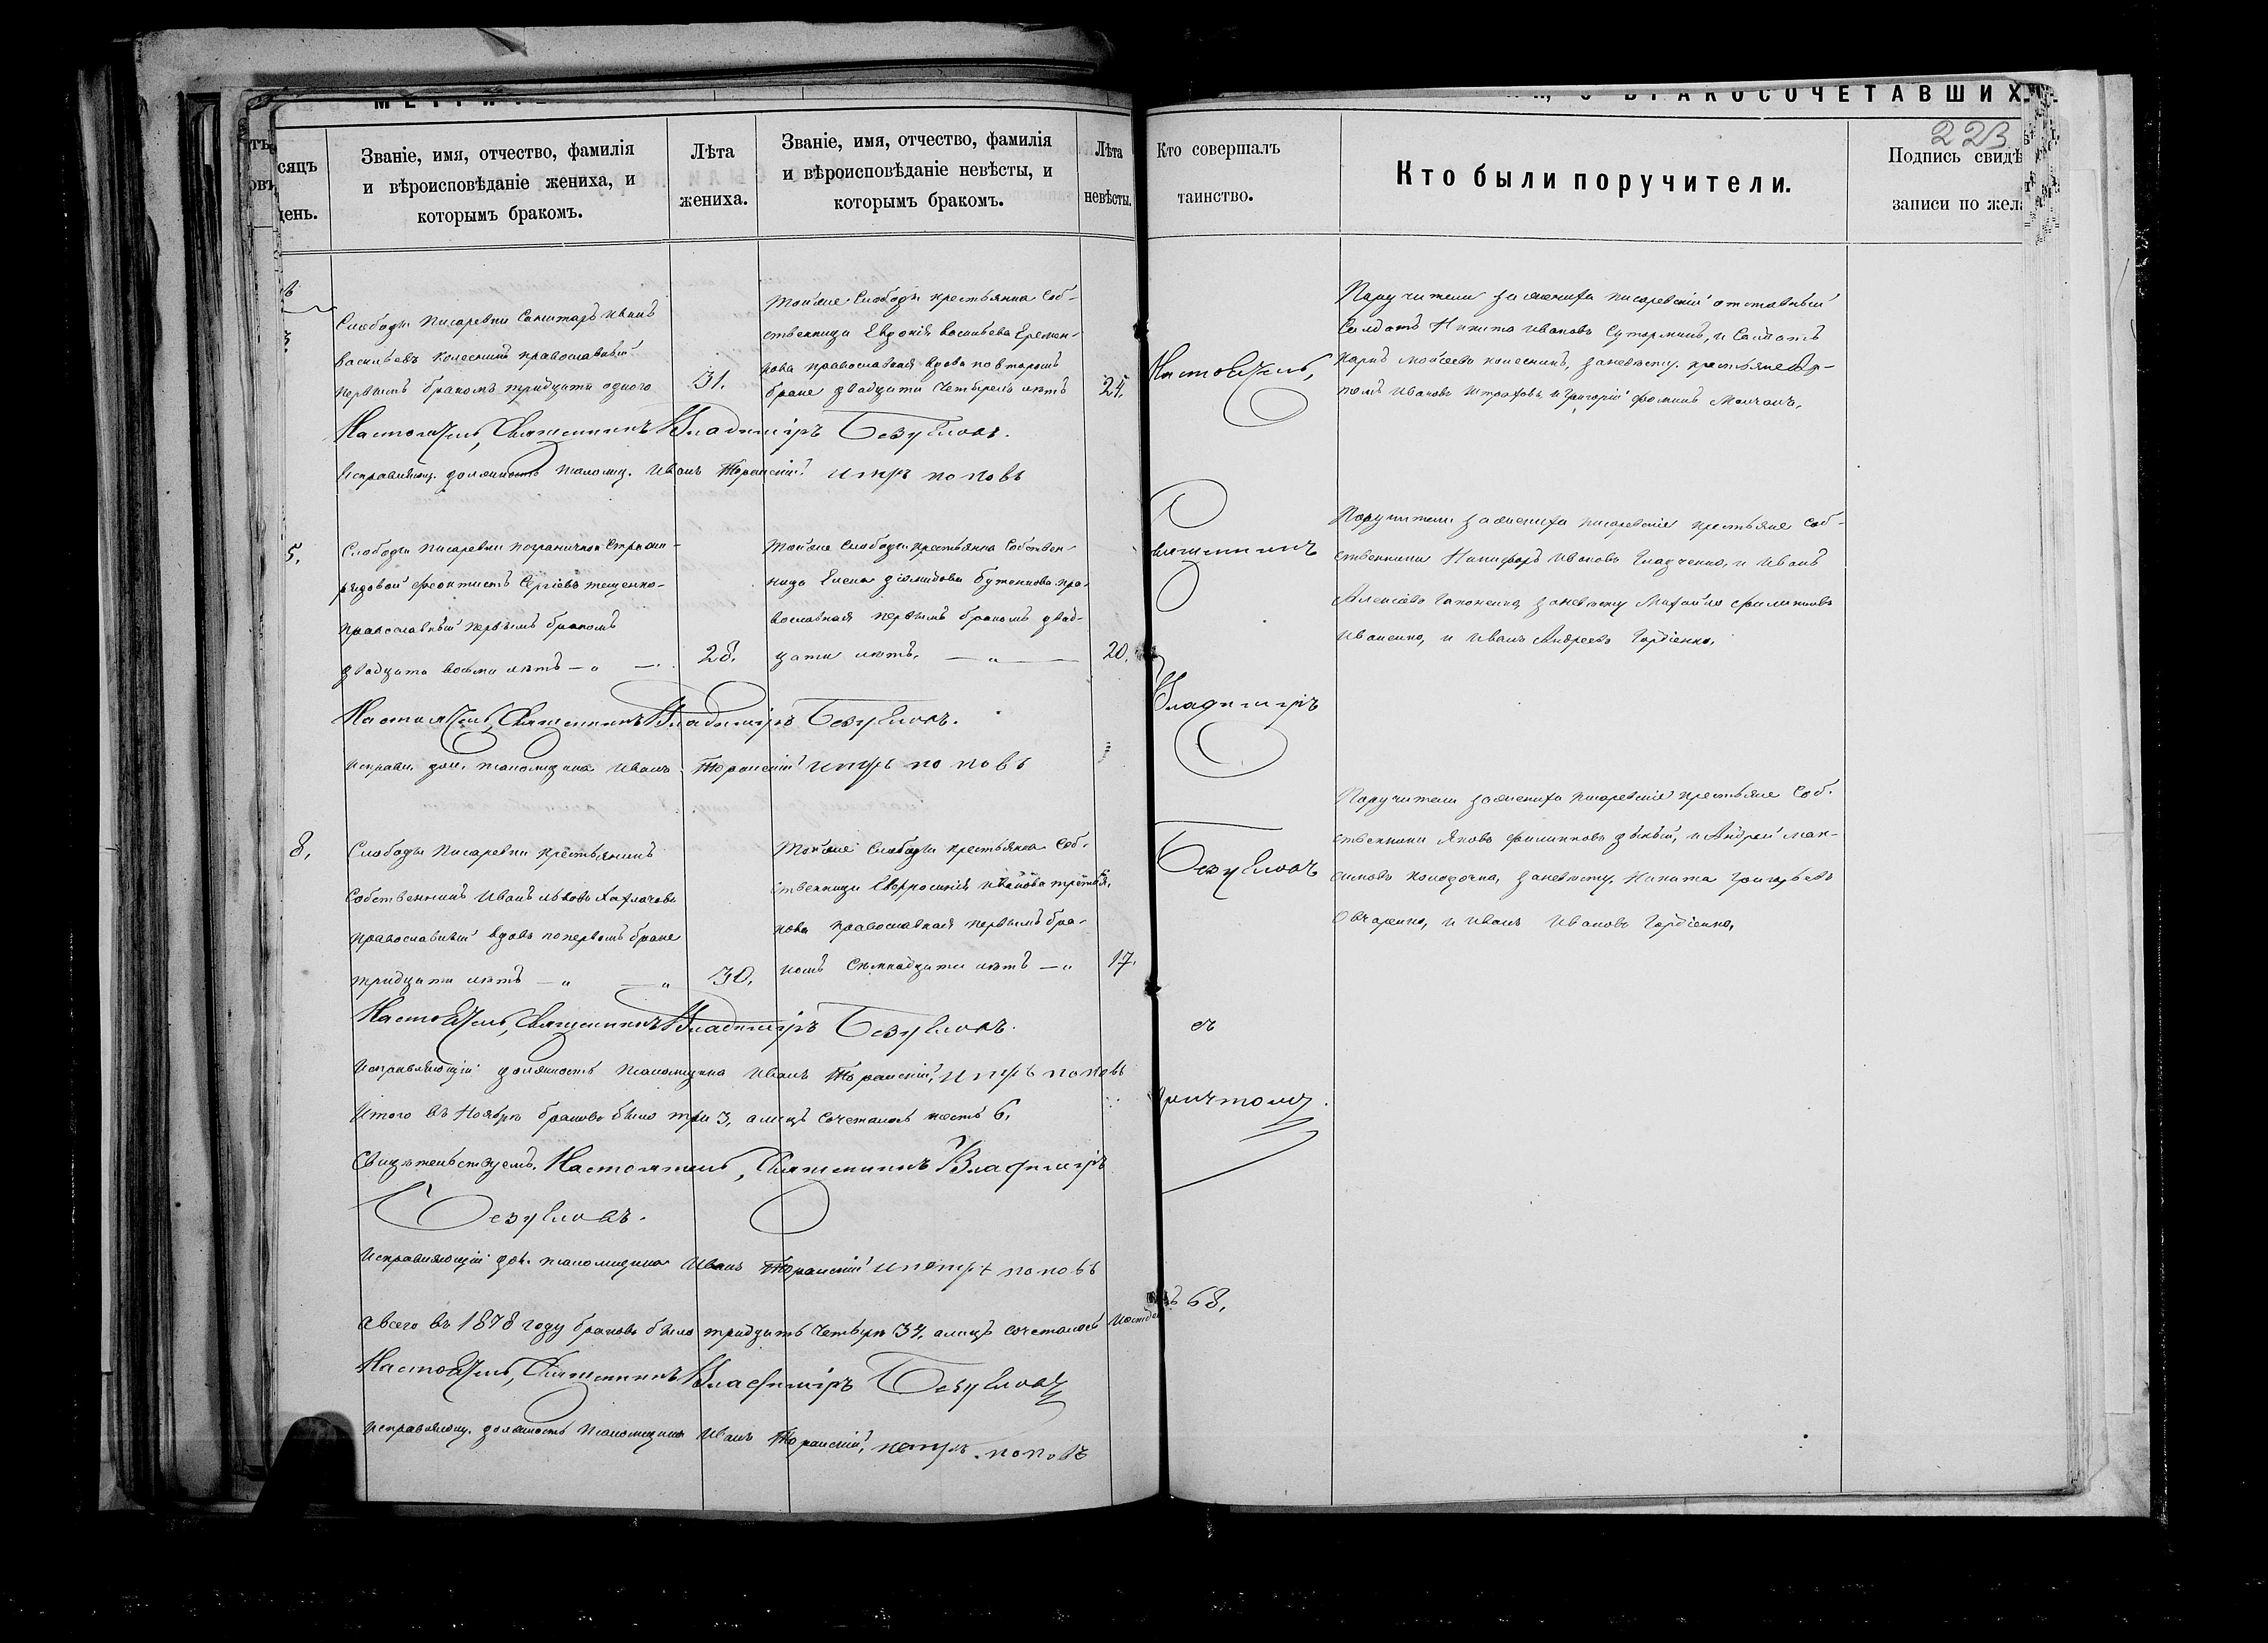 О БРАКОСОЧЕТАВШИХ
223
сяцъ
день.
Званіе, имя, отчество, фамилія
и вѣроисповѣданіе жениха, и
которымъ бракомъ.
Лѣта
жениха.
Званіе, имя, отчество, фамилія
и вѣроисповѣданіе невѣсты, и
которымъ бракомъ.
Лѣта
невѣсты.
Кто совершалъ
таинство.
Кто были поручители.
Подпись свидѣ
записи по жел
Слободы Писаревки Санитаръ Иванъ
Васильевъ Колесникъ православный
первымъ бракомъ тридцати одного
31.
Тойже Слободы крестьянка Соб-
ственница Евдокія Васильева Еремен-
кова православная вдова повторомъ
браке двадцати четырехъ лѣтъ
24.
Настоятель,
Поручители зажениха писаревскій отставный
Солдатъ Никита Ивановъ Сутормин, и Солдатъ
Карпъ Моисеевъ Колесникъ, заневѣсту крестьяне
Ивановъ и Григорій Фоминъ
Настоятель, Священникъ Владиміръ Безугловъ.
Исправляющ. должность псаломщ. Иванъ Торанскій петръ поповъ
5.
Слободы Писаревки пограничной Стражи
рядовой Феоктистъ Сергіевъ Тещенко
православный первымъ бракомъ
двадцати восьми лѣтъ — „ —
28.
Тойже Слободы крестьянка Собствен-
ница Елена Діомидова Буженкова пра-
вославная первымъ бракомъ двад-
цати лѣтъ. — „ —
20.
Священникъ
Поручители зажениха писаревскіе крестьяне Соб-
ственники Никифоръ Ивановъ Гладченко, и Иванъ
Алексіевъ Гапоненко, заневѣсту Михайло Филиповъ
Иваненко, и Иванъ Андреевъ Гордіенко,
Настоятель, Священникъ Владиміръ Безугловъ.
Исправл. дол. псаломщика Иванъ Торанскій петръ поповъ
Владиміръ
8.
Слободы Писаревки крестьянинъ
Собственникъ Иванъ Львовъ
православный вдовъ поперьвомъ браке
тридцати лѣтъ — „ — „
30.
Тойже Слободы крестьянка Соб-
ственница Евфросинія Иванова Третья-
кова православная первымъ бра-
комъ Семнадцати лѣтъ — „
17.
Безугловъ
Поручители зажениха писаревскіе крестьяне Соб-
ственники Яковъ Филиповъ и Андрей Мак-
симовъ Колодочка, заневѣсту, Никита Григорьевъ
Овчаренко, и Иванъ Ивановъ Гордіенко,
Настоятель, Священникъ Владиміръ Безугловъ.
съ
Исправляющій должность псаломщика Иванъ Торанскій, петръ поповъ
причтомъ.
Итого въ Ноябрѣ браковъ было три 3, алицъ сочеталось шесть 6.
Свидѣтельствуемъ. Настоятель, Священникъ Владиміръ
Безугловъ.
Исправляющій дол. псаломщика Иванъ Торанскій ипетръ поповъ
Авсего въ 1878 году браковъ было тридцать четыре 34, алицъ сочеталось 68.
Настоятель, Священникъ Владиміръ Безугловъ
Исправляющ. должность псаломщика Иванъ Торанскій, петръ поповъ